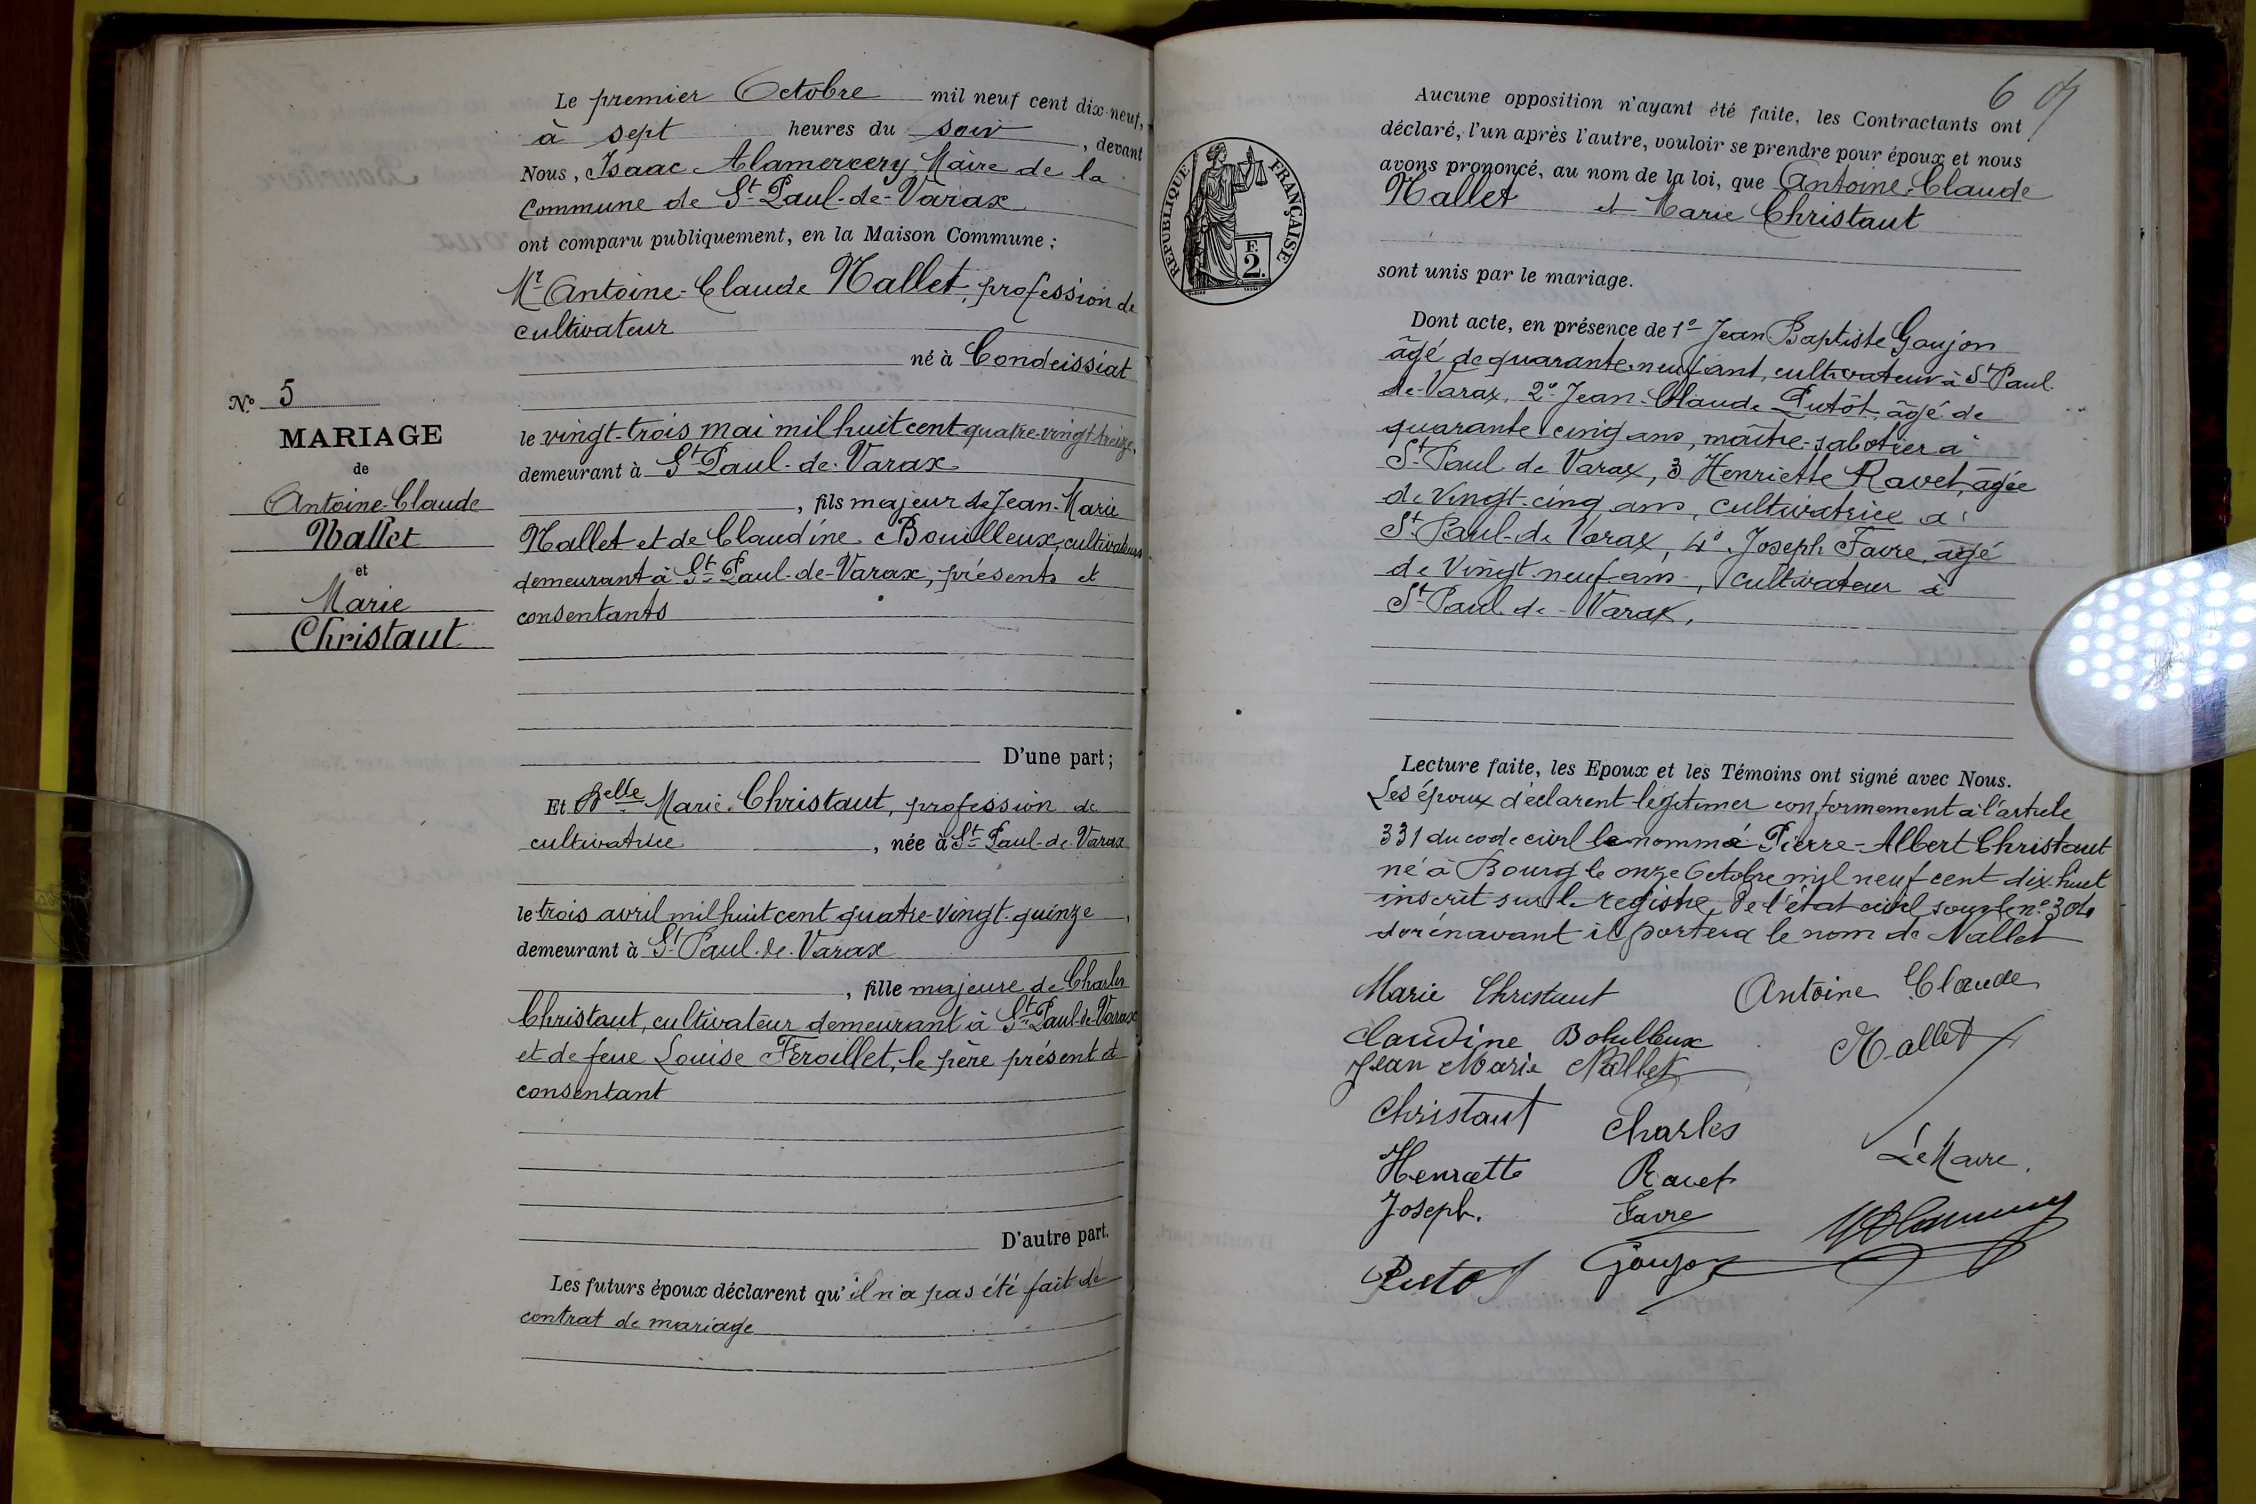 Le premier Octobre mil neuf cent dix-neuf,
à sept heures du soir, devant
Nous, Isaac Alamercery, Maire de la
commune de St Paul-de-Varax
ont comparu publiquement, en la Maison Commune;
Mr Antoine-Claude Nallet, profession de
cultivateur
né à Condeissiat
No 5
MARIAGE
de
Antoine-Claude
Nallet
et
Marie
Christaut
le vingt-trois mai mil huit cent quatre-vingt-treize,
demeurant à St Paul-de-Varax
, fils majeur de Jean-Marie
Nallet et de Claudine Bouilleux, cultivateurs
demeurant à St Paul-de-Varax, présents et
consentants
D'une part;
Et Delle Marie Christaut, profession de
cultivatrice, née à St Paul-de-Varax
le trois avril mil huit cent quatre-vingt-quinze,
demeurant à St Paul-de-Varax
, fille majeure de Charles
Christaut, cultivateur demeurant à St Paul-de-Varax
et de feue Louise Feroillet, le père présent et
consentant
D'autre part.
Les futurs époux déclarent qu'il n'a pas été fait de
contrat de mariage
6
Aucune opposition n'ayant été faite, les Contractants ont
déclaré, l'un après l'autre, vouloir se prendre pour époux et nous
avons prononcé, au nom de la loi, que Antoine-Claude
Nallet et Marie Christaut
sont unis par le mariage.
REPUBLIQUE FRANÇAISE
F.
2.
Dont acte, en présence de 1º Jean Baptiste Goujon
âgé de quarante-neuf ant, cultivateur à St Paul
de-Varax, 2º Jean-Claude Putôt, âgé de
quarante cinq ans, maître-sabotier à
St Paul de Varax, 3 Henriette Ravet, âgée
de Vingt-cinq ans, cultivatrice a
St Paul-de Varax, 4º Joseph Favre, âgé
de Vingt-neuf ans, cultivateur à
St Paul de-Varax,
Lecture faite, les Epoux et les Témoins ont signé avec Nous.
Les époux déclarent legitimer conformement à l'article
331 du code civil le nommé Pierre-Albert Christaut
né à Bourg le onze Octobre mil neuf cent dix-huit
inscrit sur le registre de l'état civil sous le nº 304
dorénavant il portera le nom de Nallet
Marie Christaut Antoine Claude
Claudine Botulleux Nallet
Jean Marie Nallet
Christaut Charles
Le Maire.
Henriette Ravet
Joseph. Favre
Putot Goujon